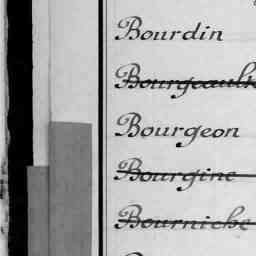 Bourdin
Bourgeault
Bourgeon
Bourgine
Bourniche